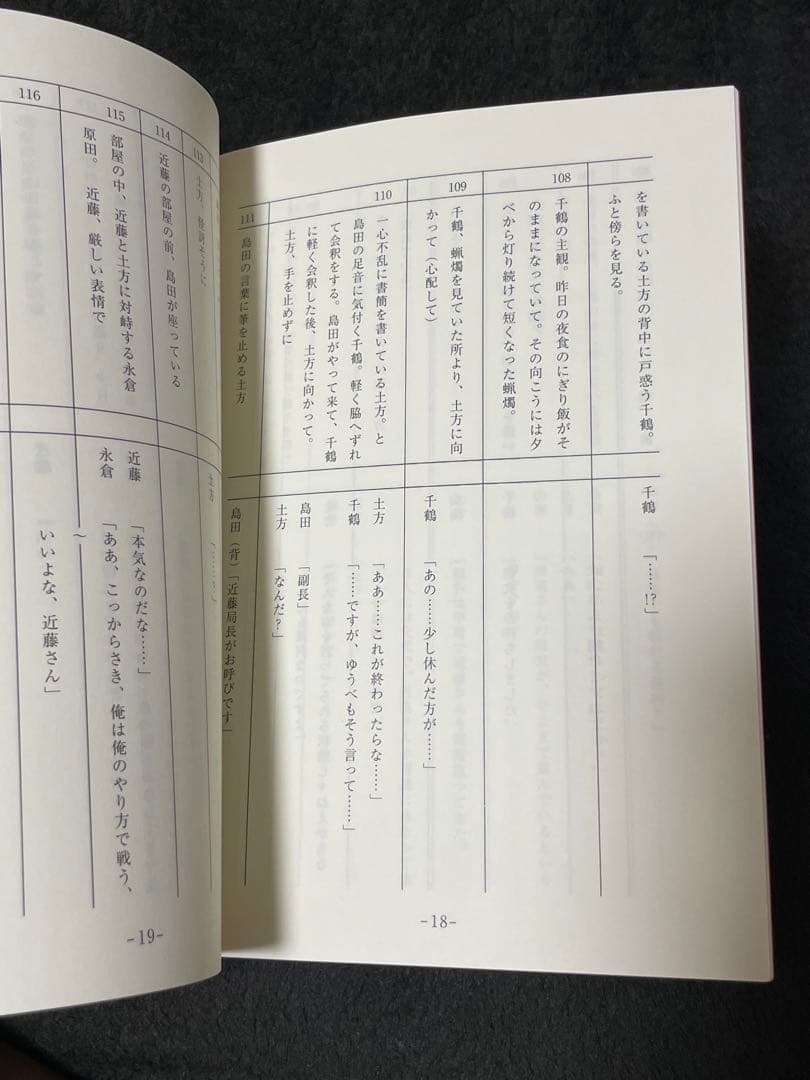 を書いている土方の背中に戸惑う千鶴。
ふと傍らを見る。
千鶴 「……!?」
108
千鶴の主観。昨日の夜食のにぎり飯がそ
のままになっていて。その向こうには夕
べから灯り続けて短くなった蝋燭。
109
千鶴、蝋燭を見ていた所より、土方に向
かって（心配して）
千鶴 「あの……少し休んだ方が……」
110
一心不乱に書簡を書いている土方。と
島田の足音に気付く千鶴。軽く脇へずれ
て会釈をする。島田がやって来て、千鶴
に軽く会釈した後、土方に向かって。
土方、手を止めずに
土方 「ああ……これが終わったらな……」
千鶴 「……ですが、ゆうべもそう言って……」
島田 「副長」
土方 「なんだ?」
111
島田の言葉に筆を止める土方
島田（背）「近藤局長がお呼びです」
-18-
113
土方、怪訝そうに
土方 「……?」
114
近藤の部屋の前、島田が座っている
115
部屋の中、近藤と土方に対峙する永倉
原田。 近藤、厳しい表情で
近藤 「本気なのだな……」
永倉 「ああ、こっからさき、俺は俺のやり方で戦う、
〜
いいよな、近藤さん」
116
-19-